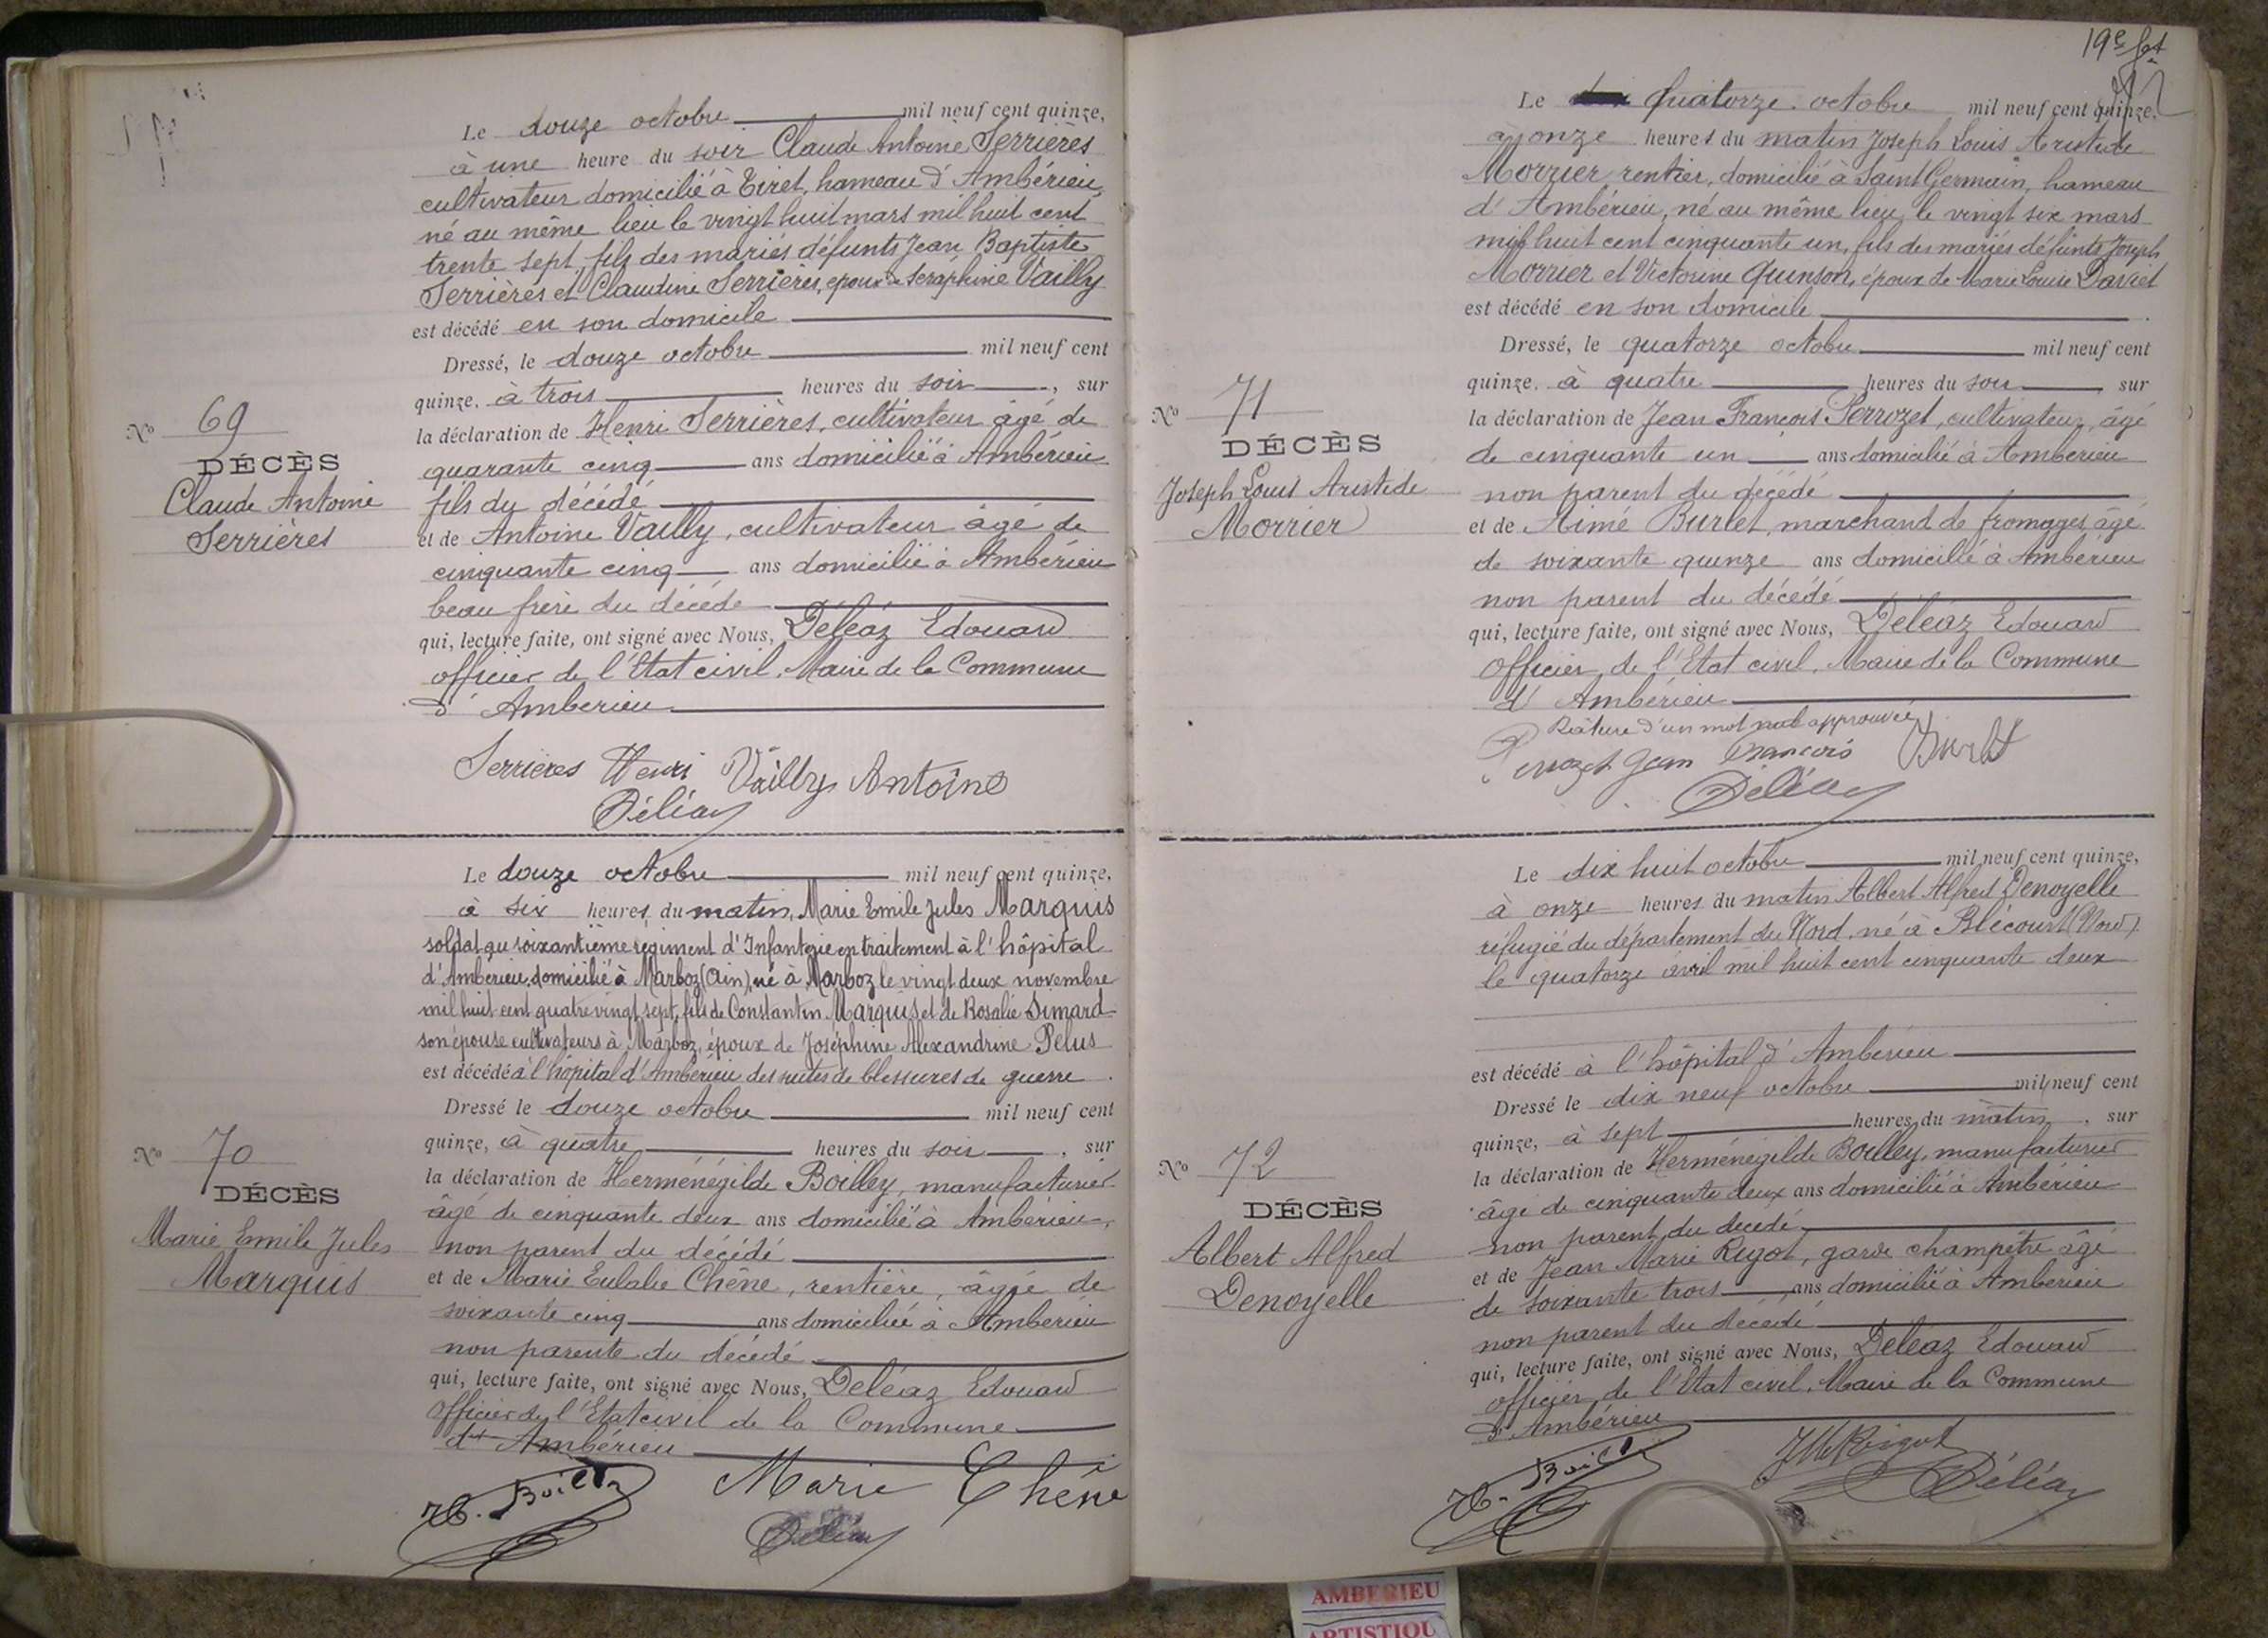 Le douze octobre mil neuf cent quinze,
à une heure du soir Claude Antoine Serrières
cultivateur domicilié à Tiret, hameau d'Ambérieu,
né au même lieu le vingt huit mars mil huit cent
trente sept, fils des mariés défunts Jean Baptiste
Serrières et Claudine Serrières, époux de Séraphine Vailly
est décédé en son domicile
Dressé, le douze octobre mil neuf cent
quinze, à trois heures du soir, sur
la déclaration de Henri Serrières, cultivateur âgé de
quarante cinq ans domicilié à Ambérieu
fils du décédé
et de Antoine Vailly, cultivateur âgé de
cinquante cinq ans domicilié à Ambérieu
beau frère du décédé
qui, lecture faite, ont signé avec Nous, Déléaz Edouard
officier de l'Etat civil, Maire de la Commune
d'Ambérieu
No 69
DÉCÈS
Claude Antoine
Serrières
Serrières Henri Vailly Antoine
Déléaz
Le douze octobre mil neuf cent quinze,
à six heures du matin, Marie Emile Jules Marquis
soldat au soixantième régiment d'Infanterie en traitement à l'hôpital
d'Ambérieu, domicilié à Marboz (Ain), né à Marboz le vingt deux novembre
mil huit cent quatre vingt sept, fils de Constantin Marquis et de Rosalie Simard
son épouse cultivateurs à Marboz, époux de Joséphine Alexandrine Pelus
est décédé à l'hôpital d'Ambérieu des suites de blessures de guerre.
Dressé le douze octobre mil neuf cent
quinze, à quatre heures du soir, sur
la déclaration de Herménégilde Boilley, manufacturier
âgé de cinquante deux ans domicilié à Ambérieu,
non parent du décédé
et de Marie Eulalie Chêne, rentière, âgée de
soixante cinq ans domiciliée à Ambérieu
non parente du décédé
qui, lecture faite, ont signé avec Nous, Déléaz Edouard
Officier de l'Etat civil de la Commune
d'Ambérieu
No 70
DÉCÈS
Marie Emile Jules
Marquis
H. Boilley Marie Chêne
Déléaz
19e
Le quatorze octobre mil neuf cent quinze,
à onze heures du matin Joseph Louis Aristide
Morrier rentier, domicilié à Saint Germain, hameau
d'Ambérieu, né au même lieu, le vingt six mars
mil huit cent cinquante un, fils des mariés défunts Joseph
Morrier et Victorine Quinson, époux de Marie Louise Daviet
est décédé en son domicile.
Dressé, le quatorze octobre mil neuf cent
quinze, à quatre heures du soir sur
la déclaration de Jean François Perrozet, cultivateur, âgé
de cinquante un ans domicilié à Ambérieu
non parent du décédé
et de Aimé Burlet, marchand de fromages, âgé
de soixante quinze ans domicilié à Ambérieu
non parent du décédé
qui, lecture faite, ont signé avec Nous, Déléaz Edouard
Officier de l'Etat civil, Maire de la Commune
d'Ambérieu
Rature d'un mot nul approuvée
No 71
DÉCÈS
Joseph Louis Aristide
Morrier
Perrozet Jean François Burlet
Déléaz
Le dix huit octobre mil neuf cent quinze,
à onze heures du matin Albert Alfred Denoyelle
réfugié du département du Nord, né à Blécourt (Nord)
le quatorze avril mil huit cent cinquante deux
est décédé à l'hôpital d'Ambérieu
Dressé le dix neuf octobre mil neuf cent
quinze, à sept heures du matin, sur
la déclaration de Herménégilde Boilley, manufacturier
âgé de cinquante deux ans domicilié à Ambérieu
non parent du décédé
et de Jean Marie Rigot, garde champêtre âgé
de soixante trois ans domicilié à Ambérieu
non parent du décédé
qui, lecture faite, ont signé avec Nous, Déléaz Edouard
officier de l'Etat civil, Maire de la Commune
d'Ambérieu
No 72
DÉCÈS
Albert Alfred
Denoyelle
H. Boilley JM Rigot
Déléaz
AMBERIEU
ARTISTIQU